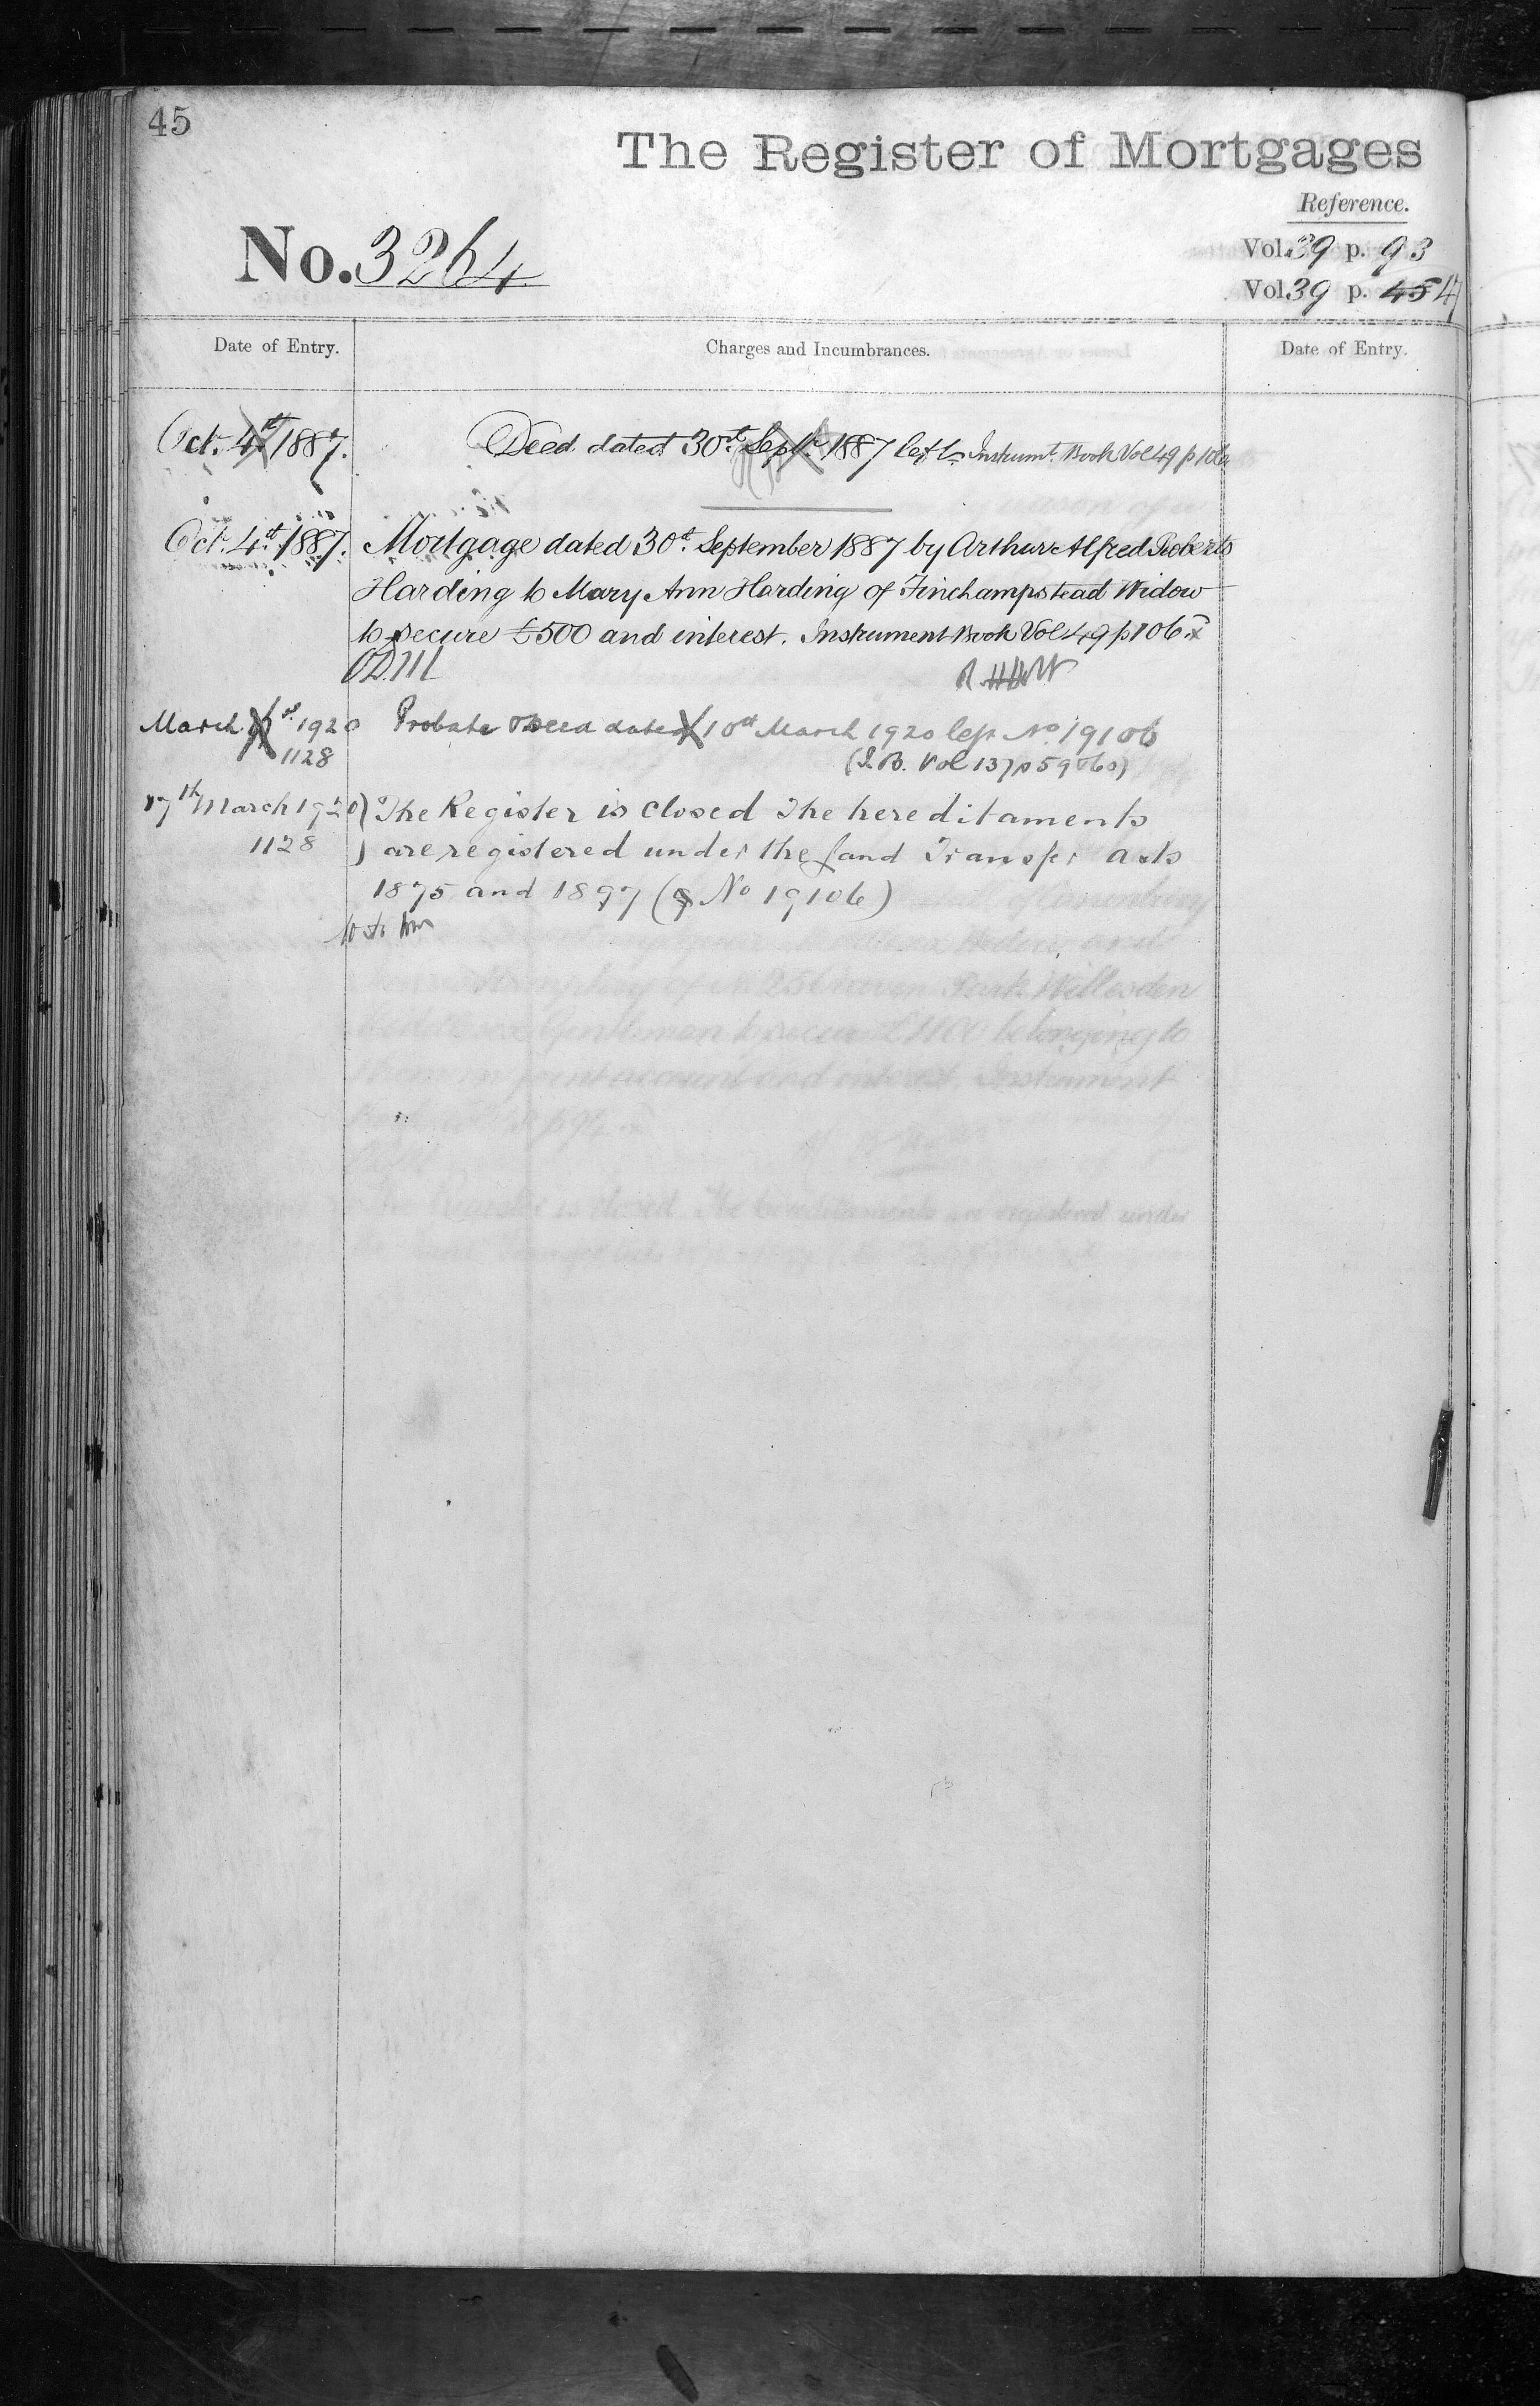 45
The Register of Mortgages
Reference.
No. 3264
Vol. 39 p. 93
Vol. 39 p. 45 47
Date of Entry. Charges and Incumbrances. Date of Entry.
Oct. 4th 1887. Deed dated 30th Sept. 1887 left Instrumt. Book Vol 49 p 106
Oct. 4th 1887. Mortgage dated 30th September 1887 by Arthur Alfred Roberts
Harding to Mary Ann Harding of Finchampstead Widow
to secure £500 and interest. Instrument Book Vol 49 p 106
March 1920 Probate Deed dated 10th March 1920 left No 19106
1128 (I.B. Vol 137 p 59 60)
17th March 1920) The Register is closed The hereditaments
1128 ) are registered under the Land Transfer acts
1875 and 1897 ( No 19106)